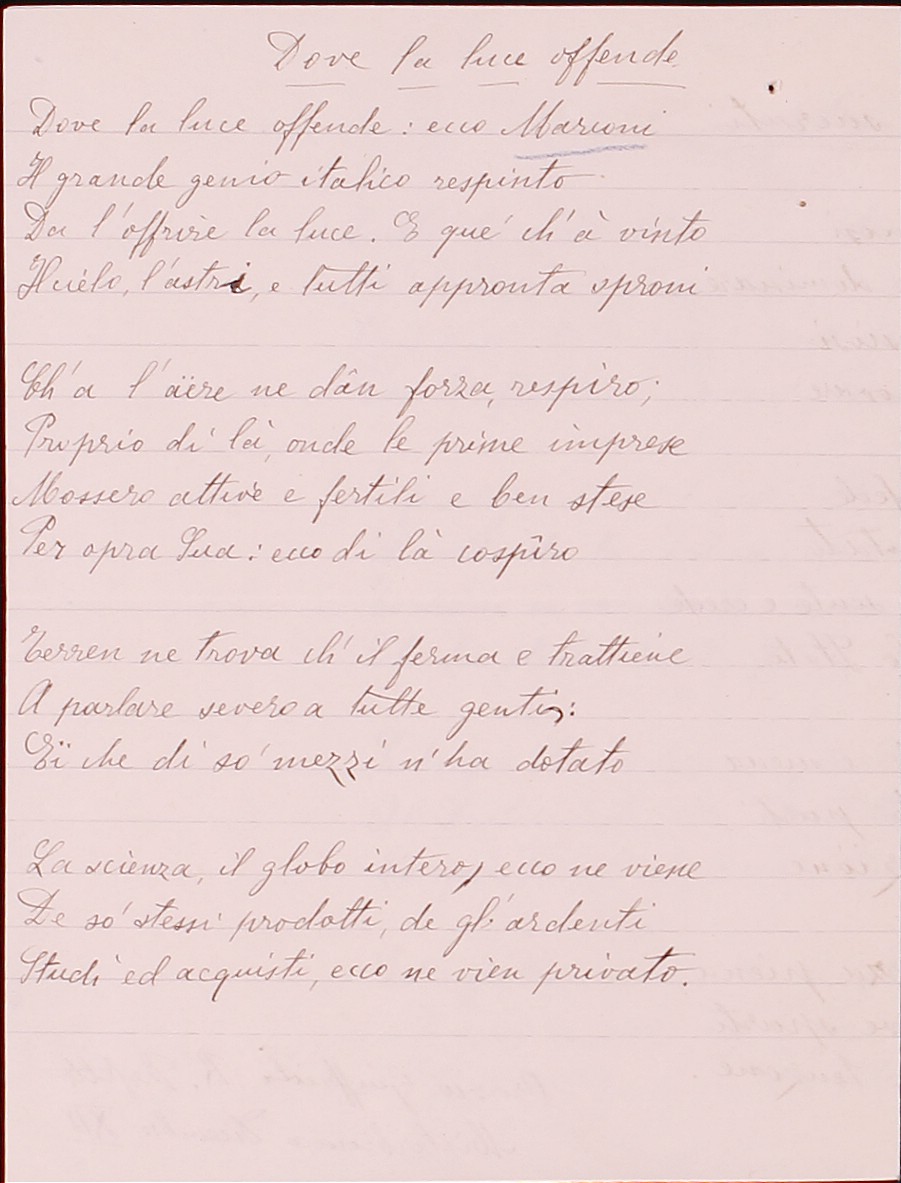 Dove la luce offende
Dove la luce offende: ecco Marconi
Il grande genio italico respinto
Da l'offrire la luce. E que' ch'à vinto
Il cielo, l'astri, e tutti appronta sproni
Ch'a l'aëre ne dân forza, respiro;
Proprio di là, onde le prime imprese
Mossero attive e fertili e ben stese
Per opra Sua: ecco di là cospîro
Terren ne trova ch'il ferma e trattiene
A parlare severo a tutte genti:
Eï che di so' mezzi n'ha dotato
La scienza, il globo intero, ecco ne viene
De so' stessi prodotti, de gl'ardenti
Studi ed acquisti, ecco ne vien privato.